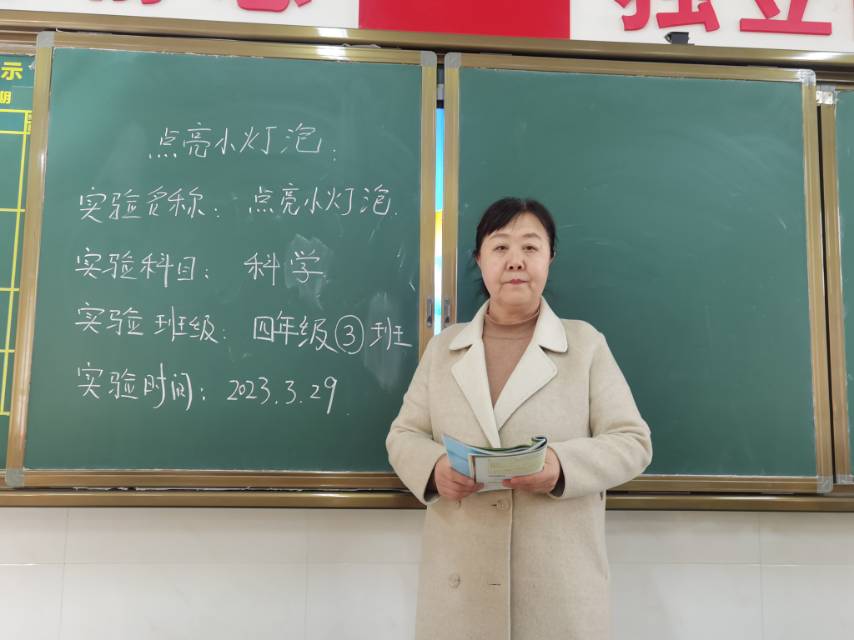 独立
示
期
点亮小灯泡:
实验名称: 点亮小灯泡.
实验科目: 科学
实验班级: 四年级③班
实验时间: 2023.3.29.